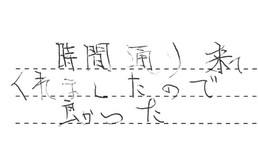 時間通り来て
くれましたので
良かった